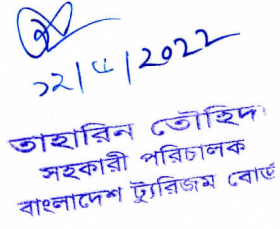 ১২/৫/২০২২
তাহারিন তৌহিদা
সহকারী পরিচালক
বাংলাদেশ ট্যুরিজম বোর্ড